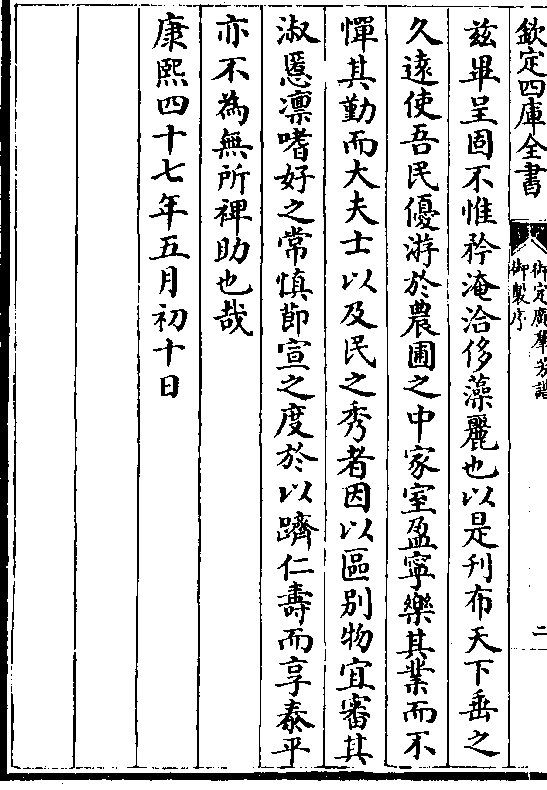 欽定四庫全書
御定廣羣芳譜
御製序
二
兹畢呈固不惟矜淹洽侈藻麗也以是刋布天下垂之
久遠使吾民優游於農圃之中家室盈寧樂其業而不
憚其勤而大夫士以及民之秀者因以區别物宜審其
淑慝凛嗜好之常慎節宣之度於以躋仁壽而享泰平
亦不為無所裨助也哉
康熙四十七年五月初十日